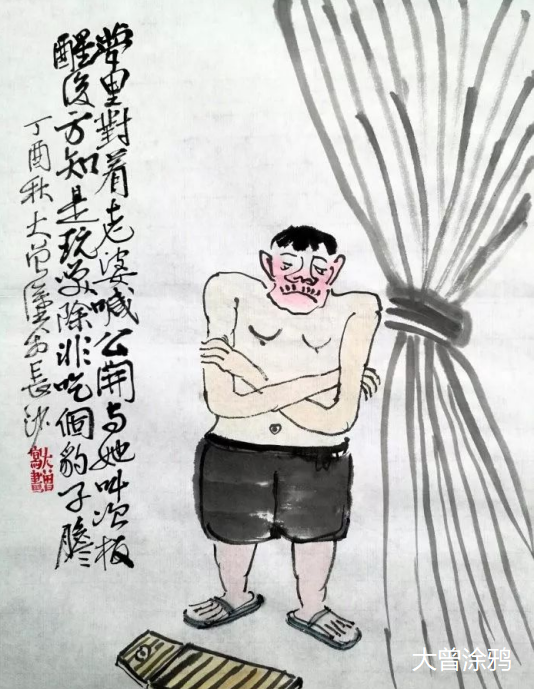 夢里對着老婆喊公開与她叫次板
醒後方知是玩笑除非吃個豹子膽
丁酉秋大曾塗於長沙
大曾涂鸦